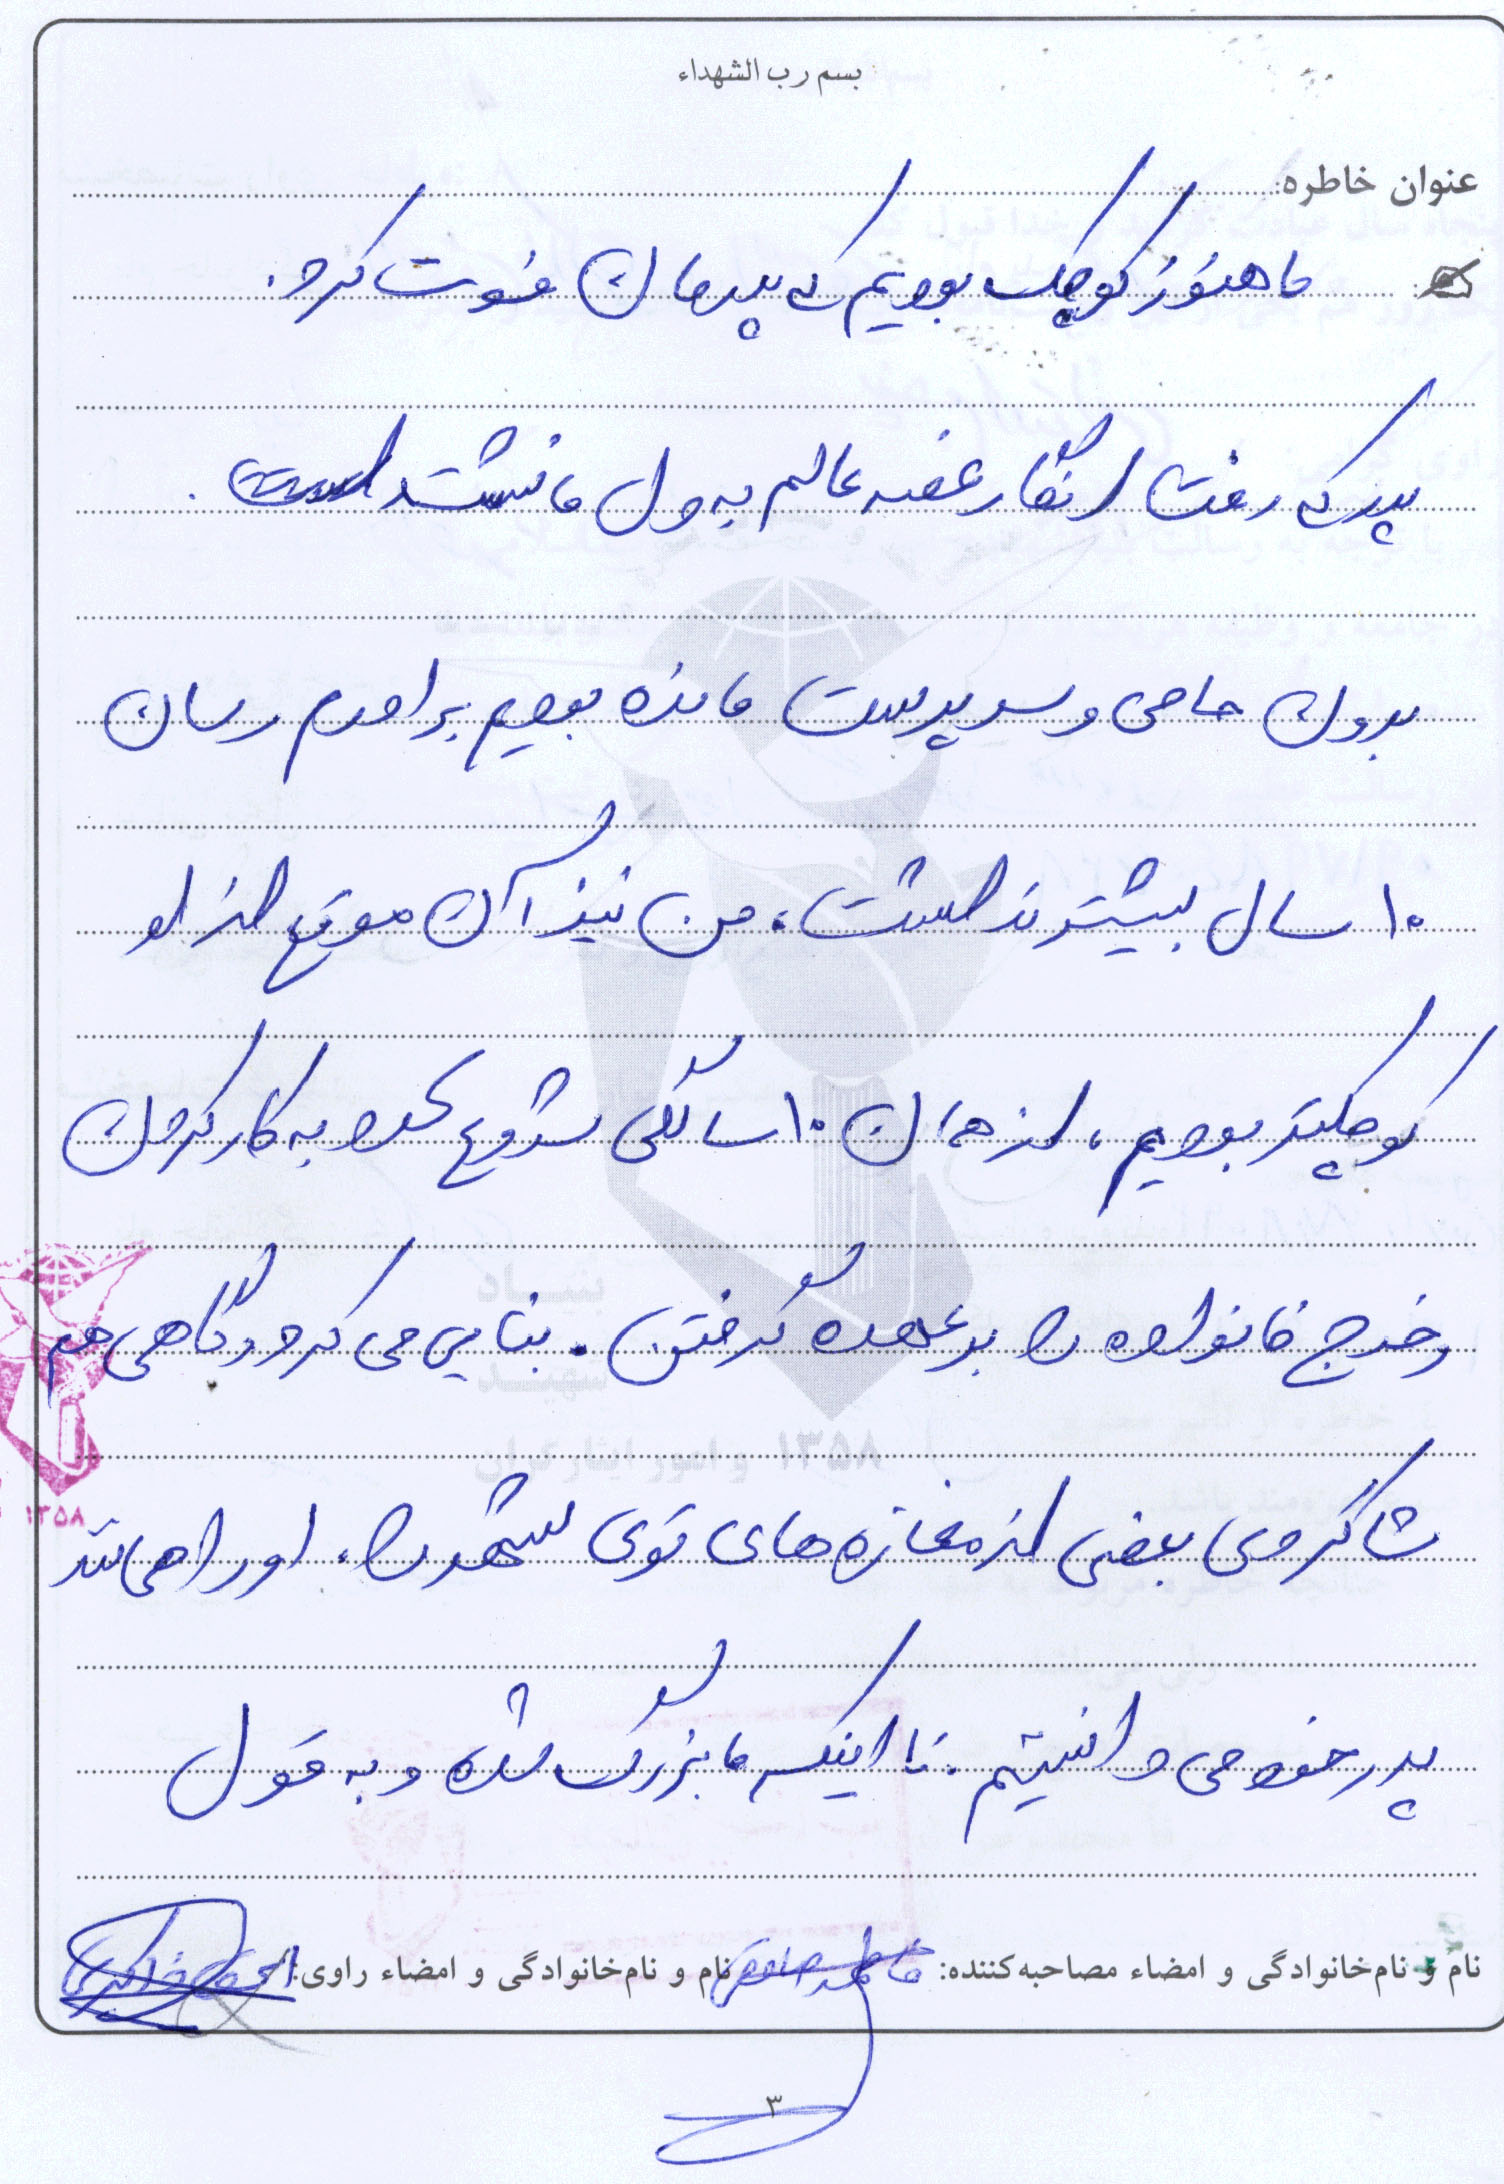 بسم رب الشهداء
عنوان خاطره:
ما هنوز کوچک بودیم که پدرمان فوت کرد.
پدر که رفت انگار غصه عالم به دل ما نشست.
بدون حامی و سرپرست مانده بودیم برادرم رسان
۱۰ سال بیشتر نداشت، من نیز آن موقع از او
کوچکتر بودیم، از همان ۱۰ سالگی شروع کرد به کار کردن
و خرج خانواده را بر عهده گرفتن. بنایی می کرد و گاهی هم
شاگردی بعضی از مغازه های توی شهر را، او را همانند
پدر خود می دانستیم. تا اینکه ما بزرگ شده و به قول
نام و نام‌خانوادگی و امضاء مصاحبه‌کننده: نام و نام‌خانوادگی و امضاء راوی:
۳
بنیاد
شهید
۱۳۵۸ و امور ایثارگران
۱۳۵۸